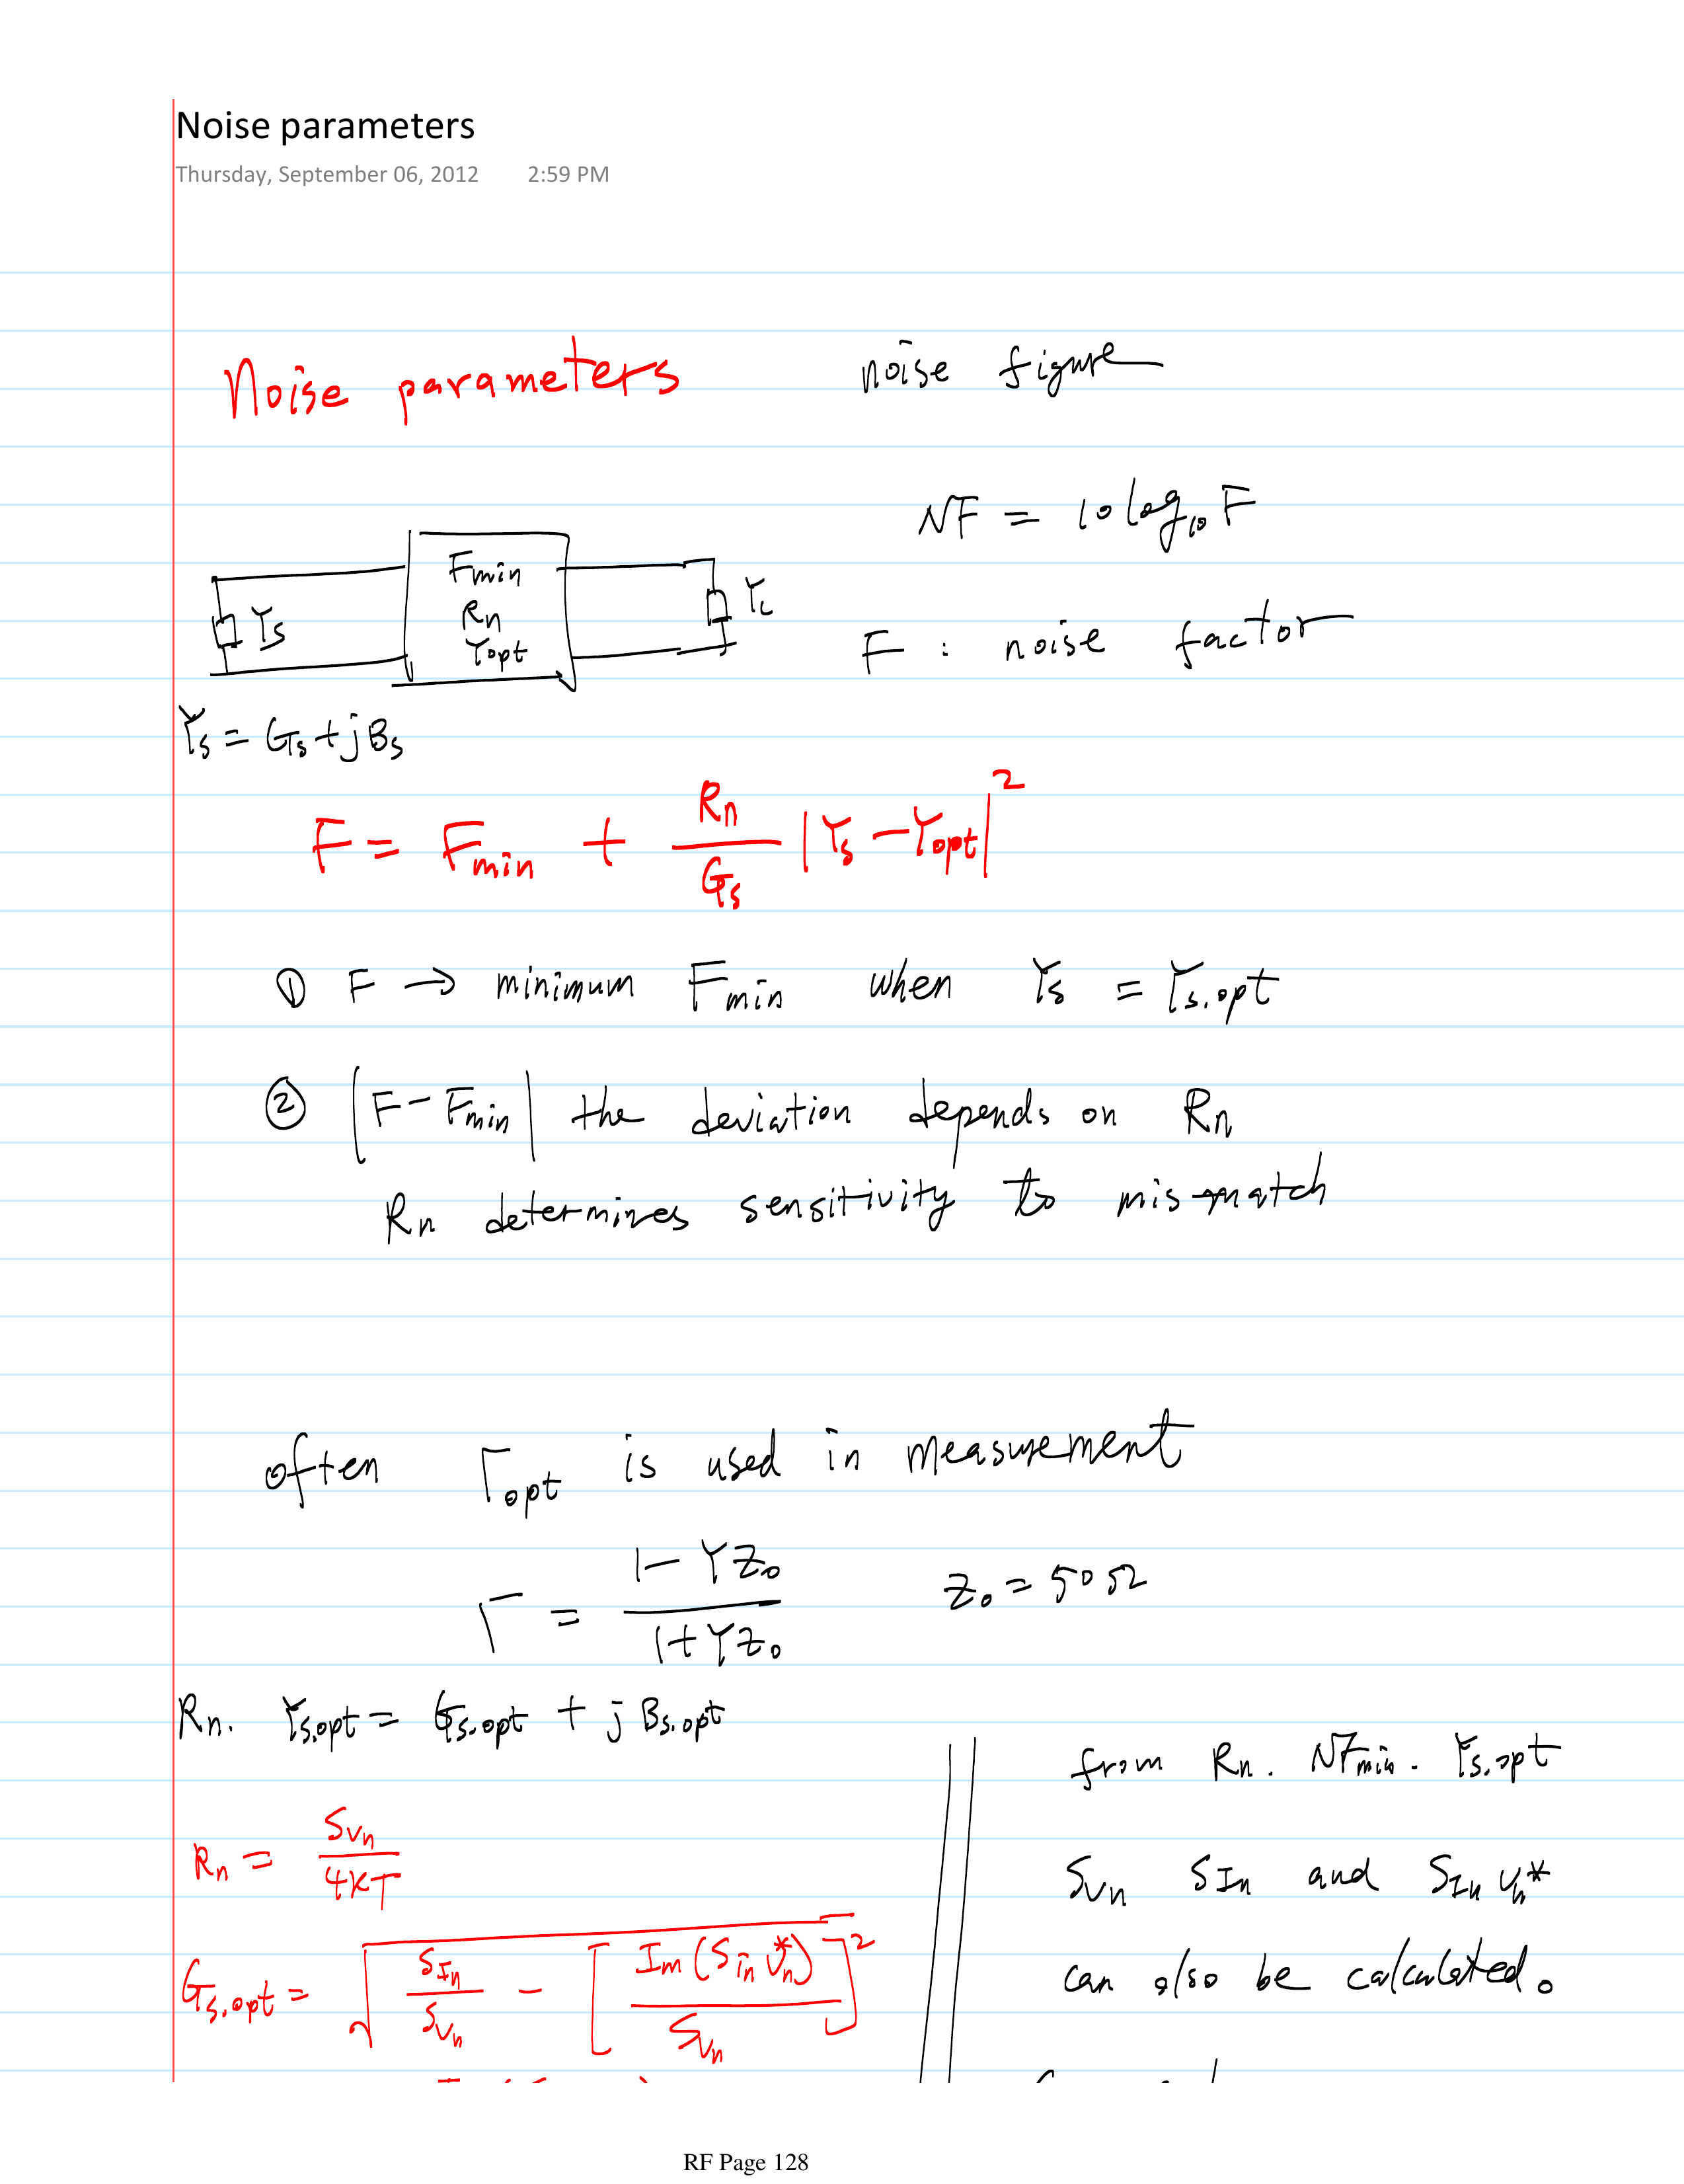 Noise parameters
Thursday, September 06, 2012 2:59 PM
Noise parameters
noise figure
NF = 10 log₁₀ F
F : noise factor
Fmin
Rn
Yopt
Ys
YL
Ys = Gs + jBs
F = Fmin + Rn/Gs |Ys - Yopt|²
① F → minimum Fmin when Ys = Ys.opt
② |F - Fmin| the deviation depends on Rn
Rn determines sensitivity to mismatch
often Γopt is used in measurement
Γ = (1 - YZ₀)/(1 + YZ₀) Z₀ = 50Ω
Rn. Ys.opt = Gs.opt + jBs.opt
Rn = Svn/4KT
Gs.opt = √(SIn/Svn - [Im(Sin vn*)/Svn]²)
from Rn. NFmin. Ys.opt
Svn SIn and SIn vn*
can also be calculated.
RF Page 128